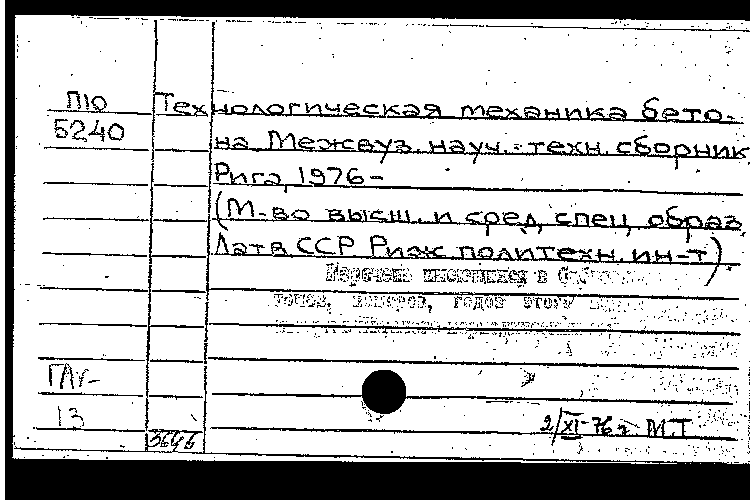 П10
5240
Технологическая механика бето-
на. Межвуз. науч.-техн. сборник
Рига, 1976-
(М-во высш. и сред. спец. образ.
Латв ССР Риж. политехн. ин-т).
Перечень имеющихся в
томов, номеров, годов этого
13
3646
2/XI-76 г. М.Т